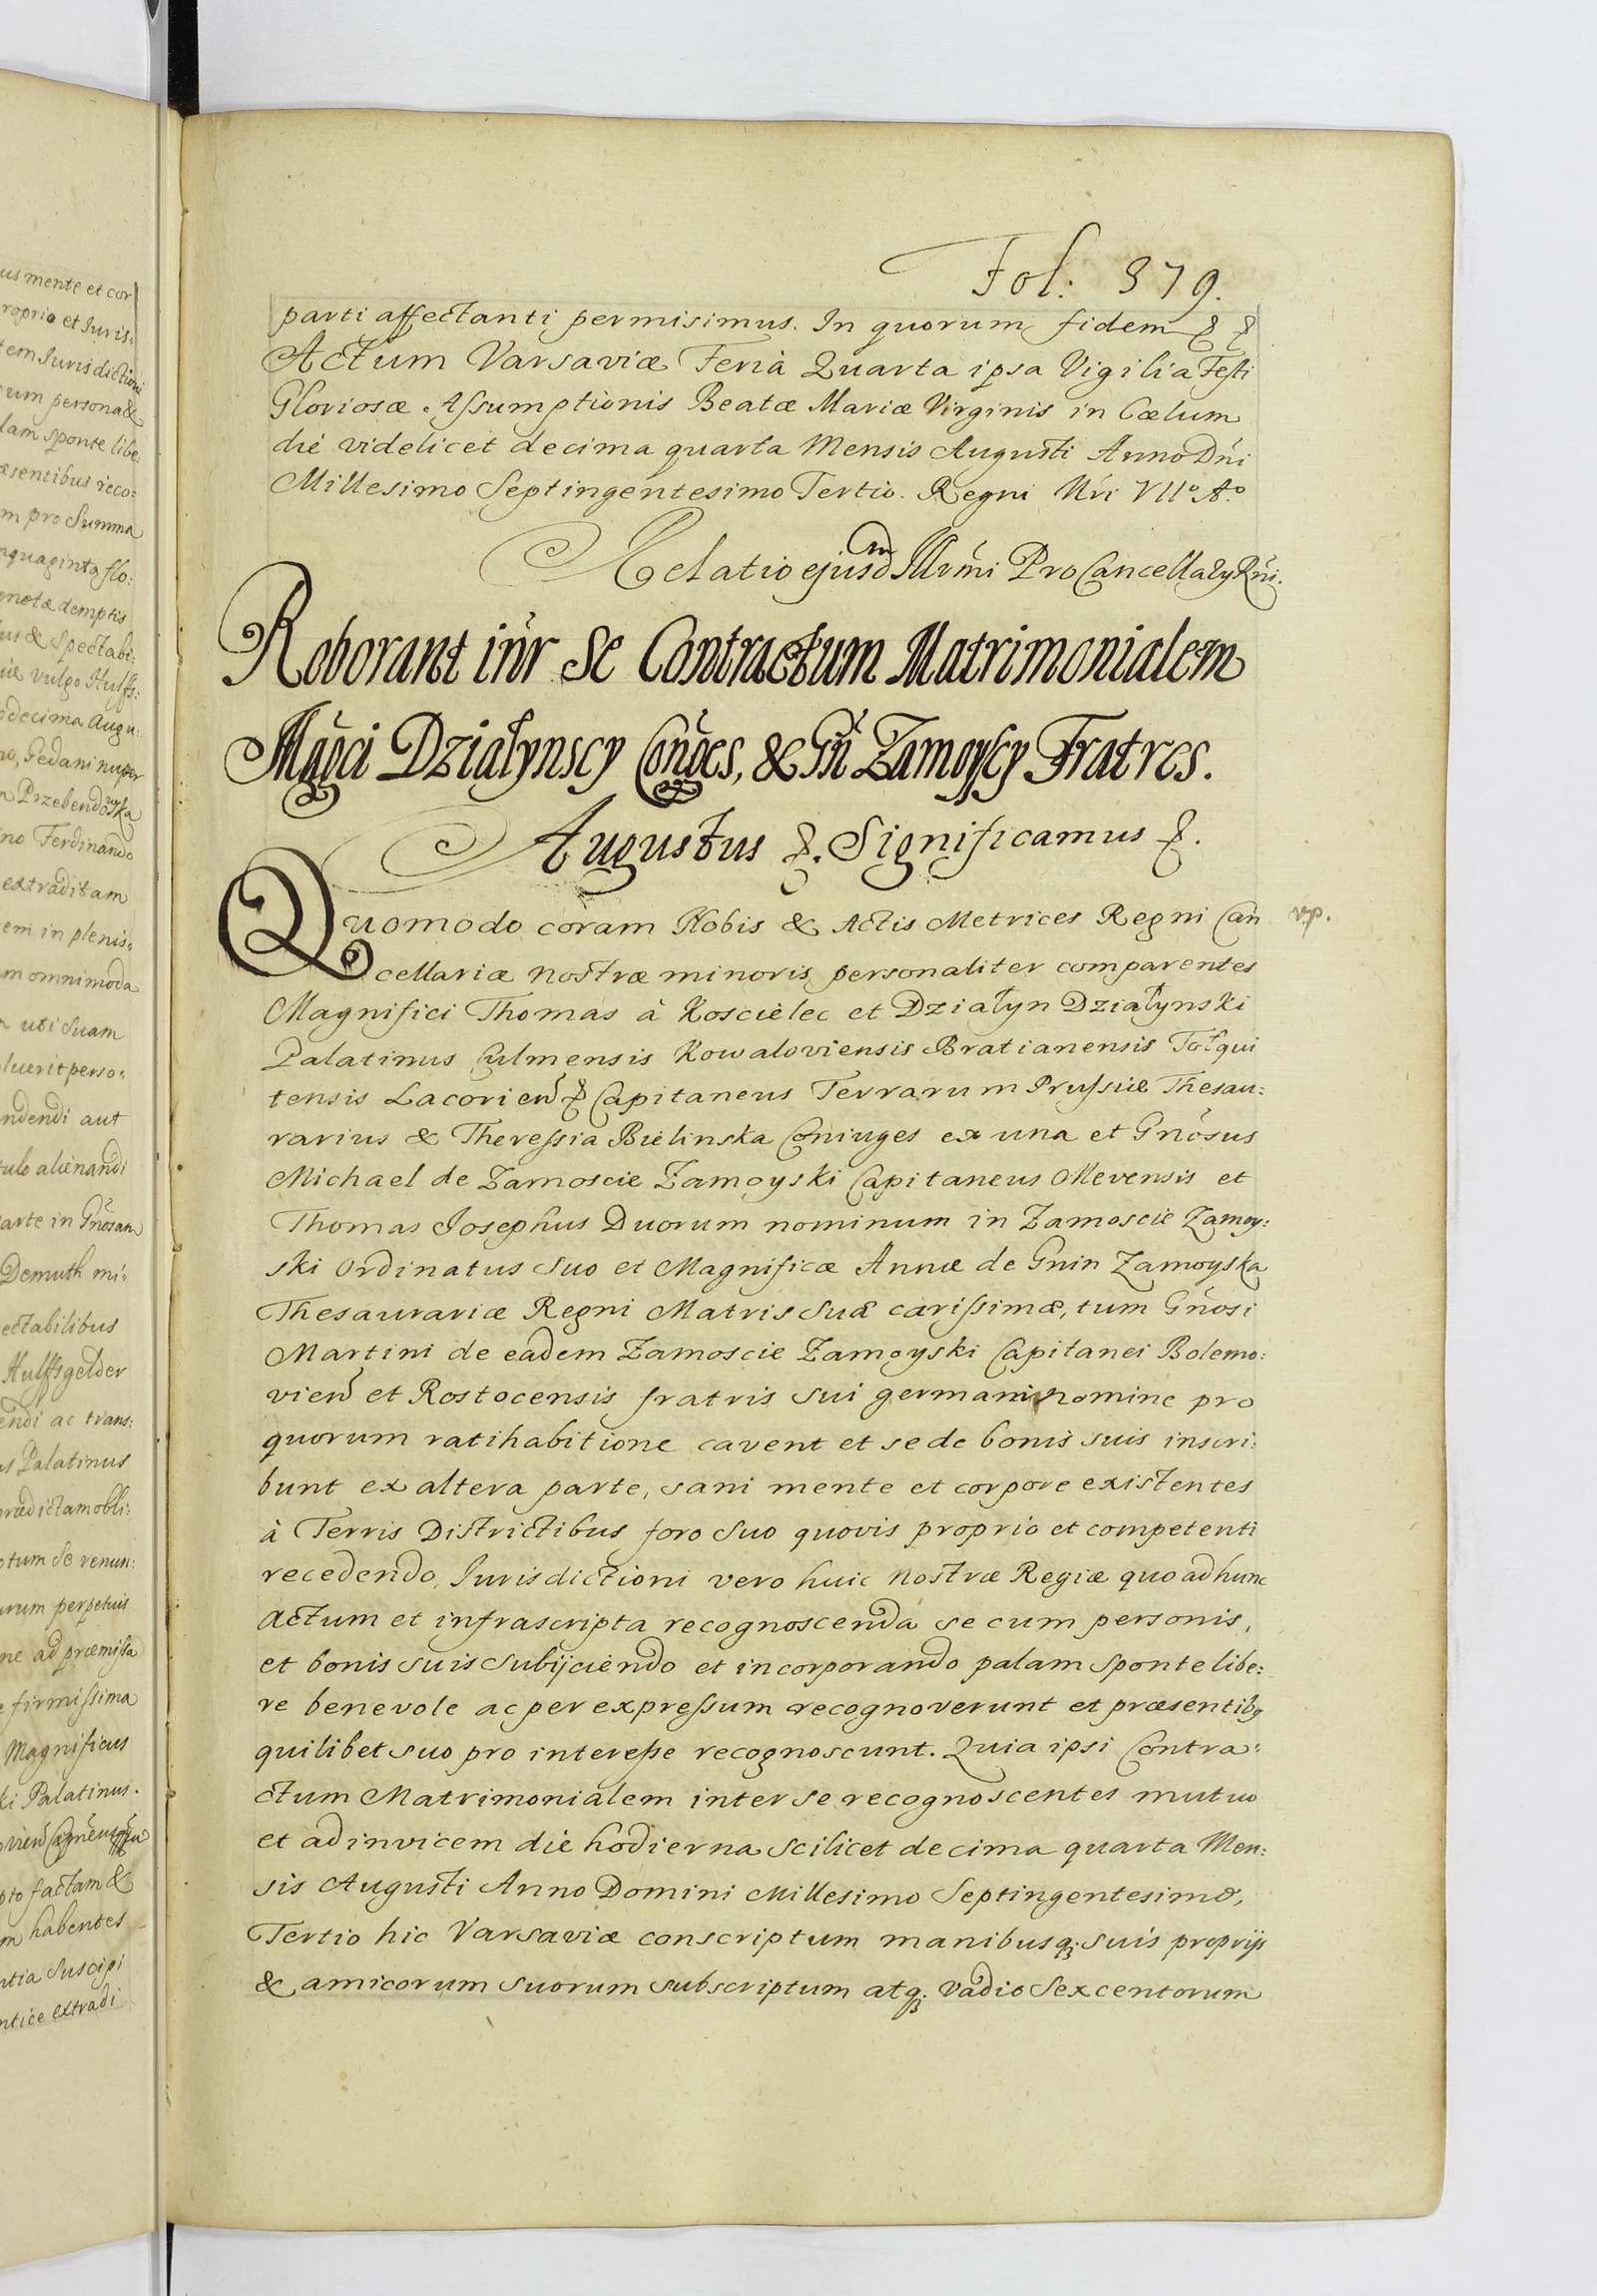 us mente et cor
roprio et Juris:
tem Jurisdictioni
cum persona &
lam sponte libe:
æsentibus reco:
m pro Summa
nquaginta flo:
notæ demptis
us & Spectabi:
vulgo Hulffs:
decima Augu:
no, Gedani nuper
Przebendowska
no Ferdinando
extraditam
em in plenis:
m omnimoda
uti Suam
luerit perso:
ndendi aut
tulo alienandi
arte in Gnosam
Demuth mi:
ectabilibus
Hulffsgelder
endi ac trans:
us Palatinus
prædictam obli:
otum Se renun:
urum perpetuis
ne ad præmissa
e firmissima
Magnificus
ki Palatinus.
pto factam &
m habentes
ntia Suscipi
ntice extradi
Fol: 379.
parti affectanti permisimus. In quorum fidem & &
Actum Varsaviæ Feria Quarta ipsa Vigilia Festi
Gloriosæ Assumptionis Beatæ Mariæ Virginis in Cœlum
die videlicet decima quarta Mensis Augusti Anno Dni
Millesimo Septingentesimo Tertio. Regni Nri VIIº Aº
Relatio ejusdm Illrmi ProCancellarij Rni.
Roborant intr Se Contractum Matrimonialem
Magci Działynscy Conges, & Gn Zamoyscy Fratres.
Augustus &. Significamus &.
Quomodo coram Nobis & Actis Metrices Regni Can
vp.
cellariæ nostræ minoris personaliter comparentes
Magnifici Thomas à Koscielec et Działyn Działynski
Palatinus Culmensis Kowaloviensis Bratianensis Tolqui
tensis Lacorien & Capitaneus Terrarum Prussiæ Thesau:
rarius & Theressia Bielinska Coniuges ex una et Gnosus
Michael de Zamoscie Zamoyski Capitaneus Mevensis et
Thomas Josephus Duorum nominum in Zamoscie Zamoy:
ski Ordinatus suo et Magnificæ Annæ de Gnin Zamoyska
Thesaurariæ Regni Matris Suæ carissimæ, tum Gnosi
Martini de eadem Zamoscie Zamoyski Capitanei Bolemo:
vien et Rostocensis fratris sui germani nomine pro
quorum ratihabitione cavent et se de bonis suis inscri:
bunt ex altera parte, sani mente et corpore existentes
à Terris Districtibus foro suo quovis proprio et competenti
recedendo, Jurisdictioni vero huic Nostræ Regiæ quo ad hunc
actum et infrascripta recognoscenda se cum personis,
et bonis suis subijciendo et incorporando palam sponte libe:
re benevole ac per expressum recognoverunt et præsentibg
quilibet suo pro interesse recognoscunt. Quia ipsi Contra:
ctum Matrimonialem inter se recognoscentes mutuo
et ad invicem die hodierna scilicet decima quarta Men:
sis Augusti Anno Domini Millesimo Septingentesimo,
Tertio hic Varsaviæ conscriptum manibusq; suis proprijs
& amicorum suorum subscriptum atq; vadio Sexcentorum